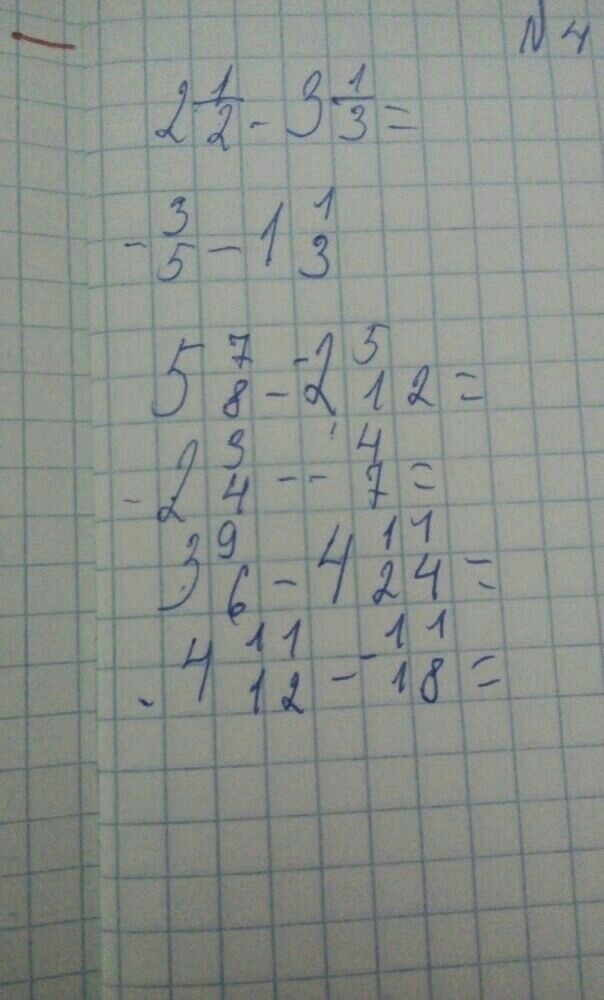 N 4
2 1/2 - 3 1/3 =
- 3/5 - 1 1/3
5 7/8 - - 2 5/12 =
- 2 3/4 - - 4/7 =
3 9/6 - 4 11/24 =
- 4 11/12 - - 11/18 =